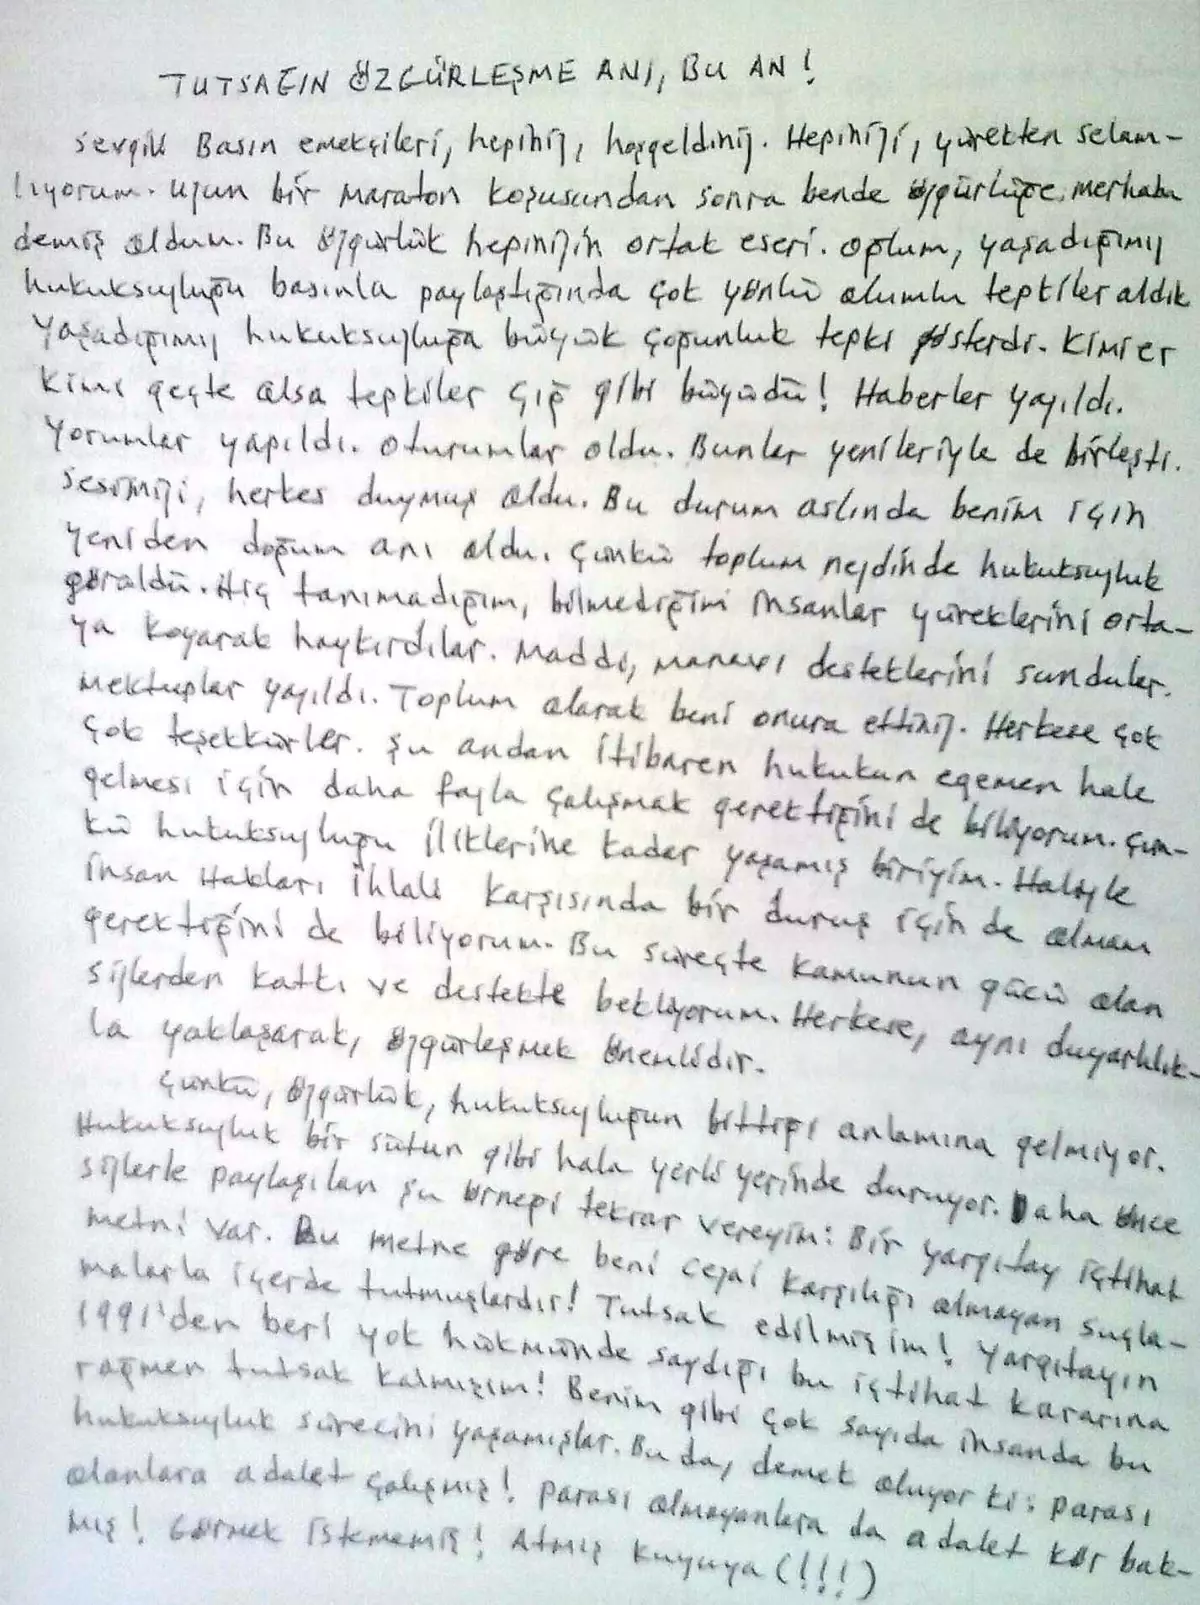 TUTSAĞIN ÖZGÜRLEŞME ANI, BU AN!
Sevgili Basın emekçileri, hepiniz, hoşgeldiniz. Hepinizi, yürekten selam-
lıyorum. Uzun bir maraton koşusundan sonra bende özgürlüğe merhaba
demiş oldum. Bu özgürlük hepinizin ortak eseri. Oğlum, yaşadığımız
hukuksuzluğu basınla paylaştığında çok yönlü olumlu tepkiler aldık
Yaşadığımız hukuksuzluğa büyük çoğunluk tepki gösterdi. Kimi er
kimi geçte olsa tepkiler çığ gibi büyüdü! Haberler yayıldı.
Yorumlar yapıldı. Oturumlar oldu. Bunlar yenileriyle de birleşti.
Sesimizi, herkes duymuş oldu. Bu durum aslında benim için
yeniden doğum anı oldu. Çünkü toplum nezdinde hukuksuzluk
görüldü. Hiç tanımadığım, bilmediğim insanlar yüreklerini orta-
ya koyarak haykırdılar. Maddi, manevi desteklerini sundular.
Mektuplar yazıldı. Toplum olarak beni onura ettiniz. Herkese çok
çok teşekkürler. Şu andan itibaren hukukun egemen hale
gelmesi için daha fazla çalışmak gerektiğini de biliyorum. Çün-
kü hukuksuzluğu iliklerine kadar yaşamış biriyim. Haliyle
insan Hakları İhlali karşısında bir duruş için de olmam
gerektiğini de biliyorum. Bu süreçte kamunun gücü olan
sizlerden katkı ve destekte bekliyorum. Herkese, aynı duyarlılık-
la yaklaşarak, özgürleşmek önemlidir.
Çünkü, özgürlük, hukuksuzluğun bittiği anlamına gelmiyor.
Hukuksuzluk bir sütun gibi hala yerli yerinde duruyor. Daha önce
sizlerle paylaşılan şu örneği tekrar vereyim: Bir yargıtay içtihat
metni var. Bu metne göre beni cezai karşılığı olmayan suçla-
malarla içerde tutmuşlardır! Tutsak edilmişim! Yargıtayın
1991'den beri yok hükmünde saydığı bu içtihat kararına
rağmen tutsak kalmışım! Benim gibi çok sayıda insanda bu
hukuksuzluk sürecini yaşamışlar. Bu da, demek oluyor ki: parası
olanlara adalet çalışmış! parası olmayanlara da adalet kör bak-
mış! Görmek istememiş! Atmış kuyuya (!!!)